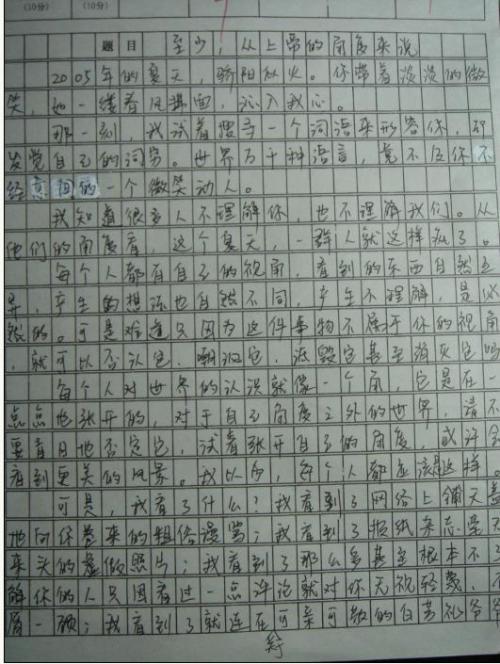 (10分)
(10分)
题目 至少，从上帝的角度来说
2005年的夏天，骄阳似火。你带着淡淡的微
笑，如一缕春风拂面，沁入我心。
那一刻，我试着搜寻一个词语来形容你，却
发觉自己的词穷。世界万千种语言，竟不及你不
经意间的一个微笑动人。
我知道很多人不理解你，也不理解我们。从
他们的角度看，这个夏天，一群人就这样疯了。
每个人都有自己的视角，看到的东西自然各
异，产生的想法也自然不同，产生不理解，是必
然的。可是难道只因为这件事物不属于你的视角
，就可以否认它，嘲讽它，诋毁它甚至消灭它吗
每个人对世界的认识就像一个角，它是在一
点点地张开的，对于自己角度之外的世界，请不
要盲目地否定它，试着张开自己的角度，或许会
看到更美的风景。我以为，每个人都应该是这样。
可是，我看了什么？我看到了网络上铺天盖
地向你卷来的粗俗谩骂；我看到了报纸杂志堂而
来头的虚假照片；我看到了那么多甚至根本不了
解你的人只因看过一点评论就对你无视轻蔑，不
屑一顾；我看到了就连在可亲可敬的白芳礼爷爷